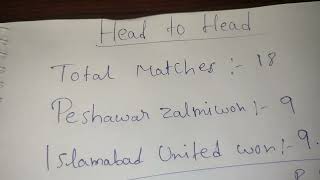 Head to Head
Total Matches :- 18
Peshawar Zalmi won :- 9
Islamabad United won :- 9.